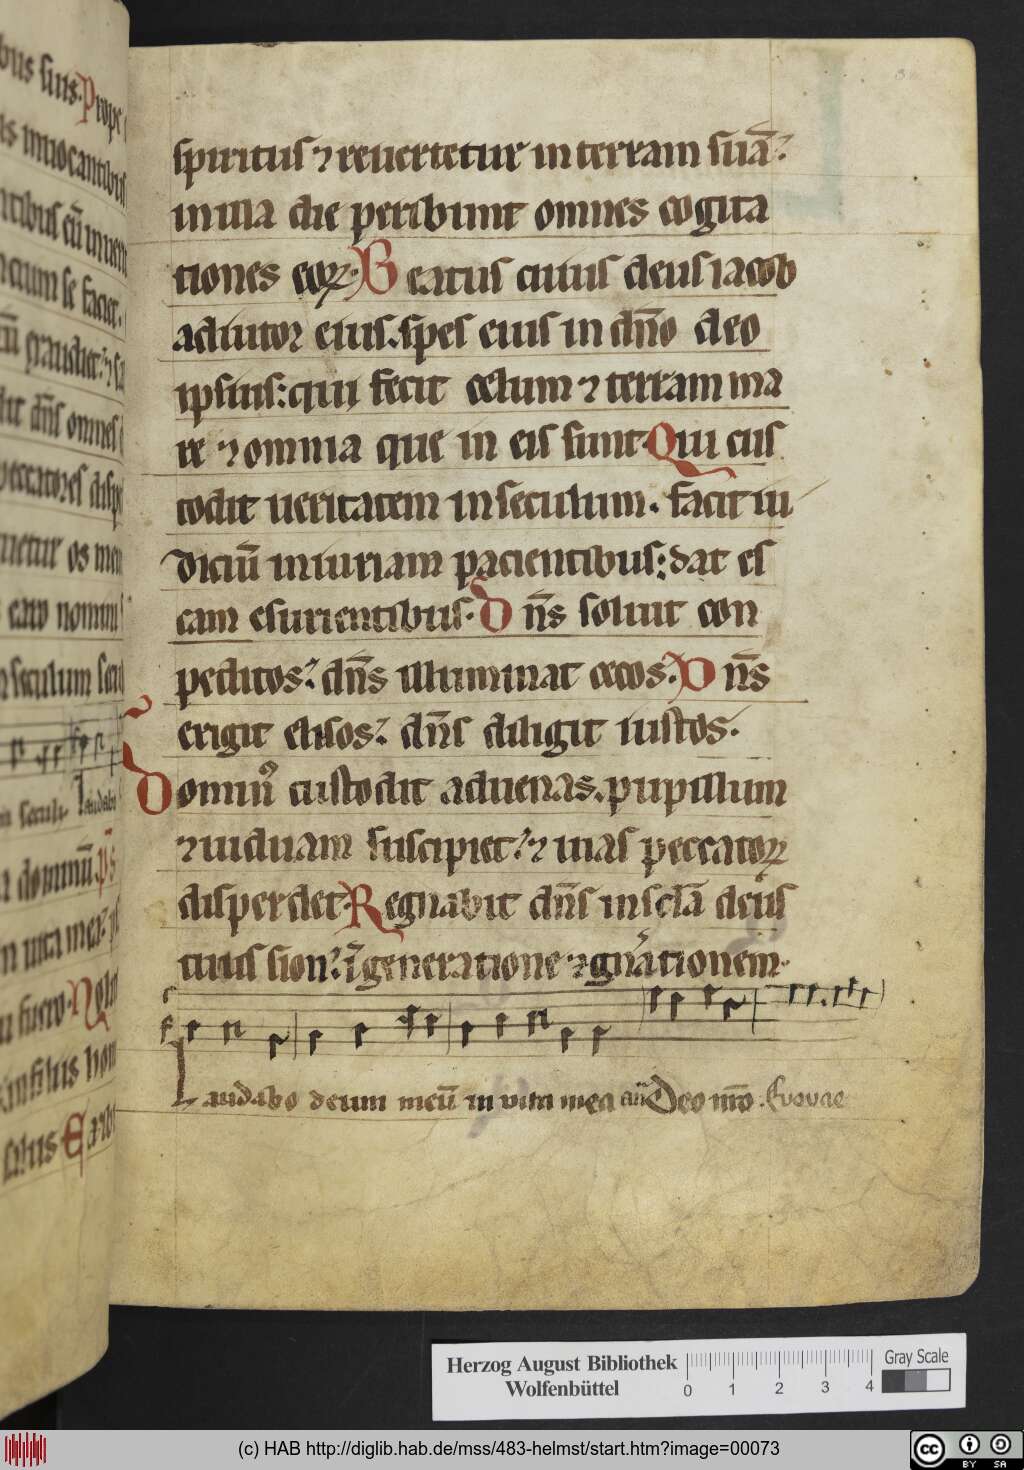 bus suis. Prope
is inuocantibus
ntibus eū in ueri
dn̄s omnes
peccatores disp
os meu
caro nomini
in seculum secu
Laudabo
seculi
dominū. ps
in uita mea:
fuero. Nolit
in filiis hom
spiritus ⁊ reuertetur in terram suā:
in illa die peribunt omnes cogita
tiones eoꝝ. Beatus cuius deus iacob
adiutor eius. spes eius in dn̄o deo
ipsius: qui fecit celum ⁊ terram ma
re ⁊ omnia que in eis sunt. Qui cus
todit ueritatem in seculum. facit iu
diciū iniuriam pacientibus: dat es
cam esurientibus. Dn̄s soluit con
peditos: dn̄s illuminat cecos: Dn̄s
erigit elisos: dn̄s diligit iustos.
Dominꝰ custodit aduenas. pupillum
⁊ uiduam suscipiet: ⁊ uias peccatoꝝ
disperdet. Regnabit dn̄s in sc̄la deus
tuus sion: ī generatione ⁊ gn̄ationem.
Laudabo deum meū in vita mea an̄ Deo nr̄o. Euouae
Herzog August Bibliothek
Wolfenbüttel
0 1 2 3 4
Gray Scale
(c) HAB http://diglib.hab.de/mss/483-helmst/start.htm?image=00073
cc BY SA